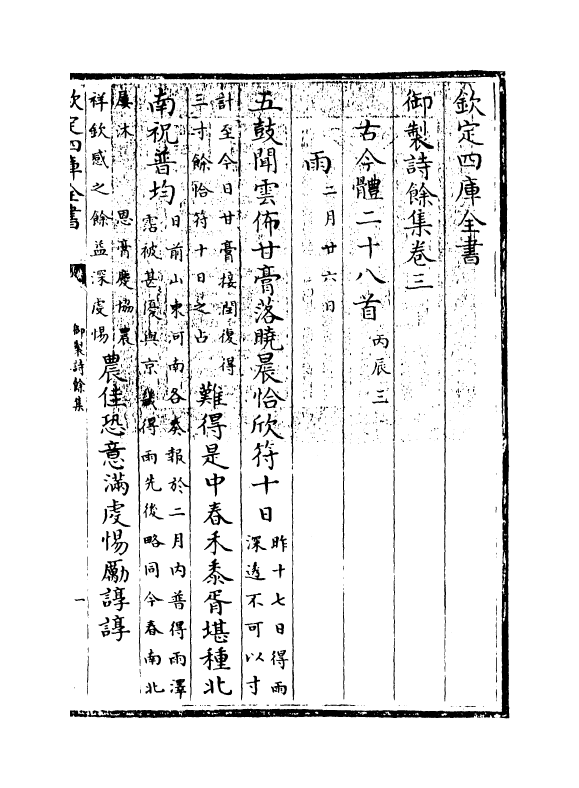 欽定四庫全書
御製詩餘集卷三
古今體二十八首丙辰三
雨二月廿六日
五鼓聞雲佈甘膏落曉晨恰欣符十日昨十七日得雨深透不可以寸
計至今日甘膏接閏復得三寸餘恰符十日之占難得是中春禾黍胥堪種北
南祝普均日前山東河南各奏報於二月內普得雨澤霑被甚優與京畿得雨先後略同今春南北
屢沐 恩膏慶協農祥欽感之餘益深虔惕農佳恐意滿虔惕勵諄諄
欽定四庫全書 御製詩餘集 一